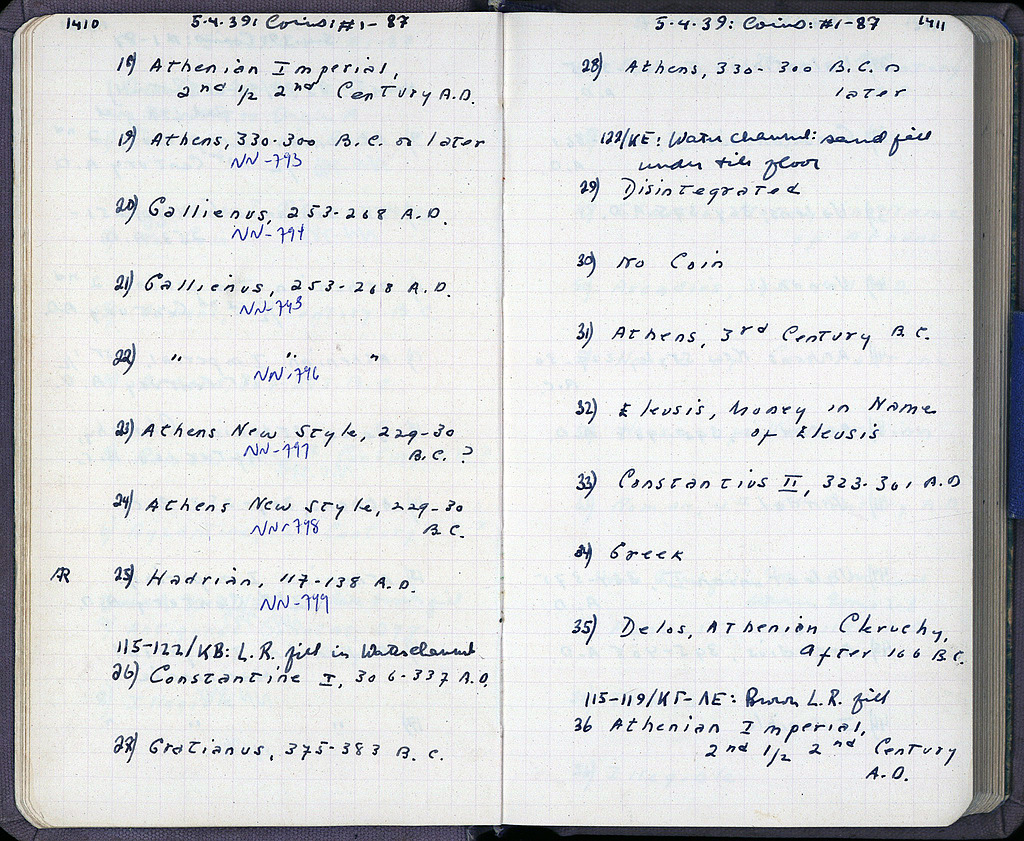 1410
5-4-39: Coins: #1-87
18) Athenian Imperial,
2nd 1/2 2nd Century A.D.
19) Athens, 330-300 B.C. or later
NN-793
20) Gallienus, 253-268 A.D.
NN-794
21) Gallienus, 253-268 A.D.
22) " " "
NN-796
23) Athens New Style, 229-30
B.C. ?
NN-797
24) Athens New Style, 229-30
B.C.
NN-798
AR 25) Hadrian, 117-138 A.D.
NN-799
115-122/KB: L.R. fill in Waterchannel
26) Constantine I, 306-337 A.D.
27) Gratianus, 375-383 B.C.
5-4-39: Coins: #1-87
1411
28) Athens, 330-300 B.C. or
later
122/KE: Water channel: sand fill
under tile floor
29) Disintegrated
30) No Coin
31) Athens, 3rd Century B.C.
32) Eleusis, Money in Name
of Eleusis
33) Constantius II, 323-361 A.D
34) Greek
35) Delos, Athenian Cleruchy,
After 166 B.C.
115-119/KΓ-ΛE: Brown L.R. fill
36 Athenian Imperial,
2nd 1/2 2nd Century
A.D.